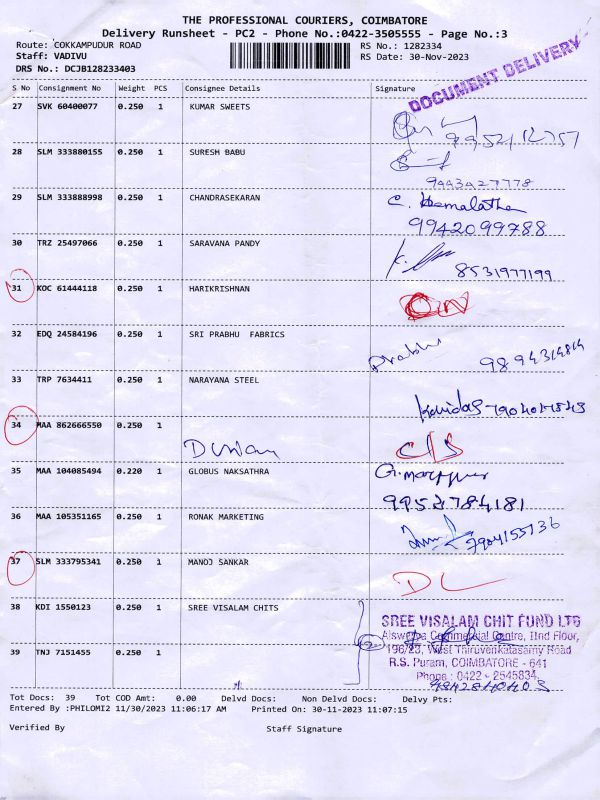 THE PROFESSIONAL COURIERS, COIMBATORE
Delivery Runsheet - PC2 - Phone No.:0422-3505555 - Page No.:3
Route: COKKAMPUDUR ROAD RS No.: 1282334
Staff: VADIVU RS Date: 30-Nov-2023
DRS No.: DCJB128233403
DOCUMENT DELIVERY
S No Consignment No Weight PCS Consignee Details Signature
27 SVK 60400077 0.250 1 KUMAR SWEETS
28 SLM 333880155 0.250 1 SURESH BABU
29 SLM 333888998 0.250 1 CHANDRASEKARAN C. Hemalatha
9942099788
30 TRZ 25497066 0.250 1 SARAVANA PANDY
8531977199
31 KOC 61444118 0.250 1 HARIKRISHNAN
32 EDQ 24584196 0.250 1 SRI PRABHU FABRICS Prabhu
33 TRP 7634411 0.250 1 NARAYANA STEEL
34 MAA 862666550 0.250 1
35 MAA 104085494 0.220 1 GLOBUS NAKSATHRA
36 MAA 105351165 0.250 1 RONAK MARKETING
7904155736
37 SLM 333795341 0.250 1 MANOJ SANKAR DL
38 KDI 1550123 0.250 1 SREE VISALAM CHITS SREE VISALAM CHIT FUND LTD
Commercial Centre, IInd Floor,
39 TNJ 7151455 0.250 1 196/23, West Thiruvenkatasamy Road
R.S. Puram, COIMBATORE - 641
Phone : 0422 - 2545834
Tot Docs: 39 Tot COD Amt: 0.00 Delvd Docs: Non Delvd Docs: Delvy Pts:
Entered By :PHILOMI2 11/30/2023 11:06:17 AM Printed On: 30-11-2023 11:07:15
Verified By Staff Signature